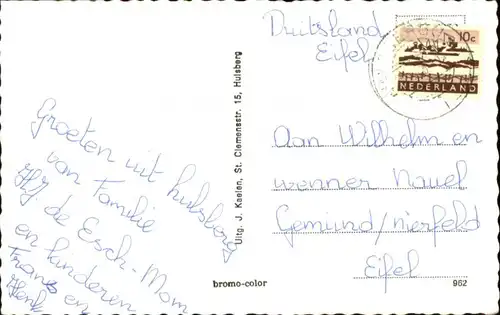 Duitsland
Eifel
10c
NEDERLAND
Groeten uit hulsberg
van Familie
H J de Esch-Mom
en kinderen
Frans en
Henk
Uitg. J. Kaelen, St. Clemensstr. 15, Hulsberg
Aan Wilhelm en
wenner Nauel
Gemünd/nierfeld
Eifel
bromo-color
962